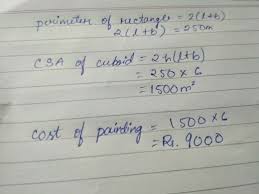 perimeter of rectangle = 2(l+b)
2(l+b) = 250m
CSA of cuboid = 2h(l+b)
= 250 × 6
= 1500m²
cost of painting = 1500 × 6
= Rs. 9000